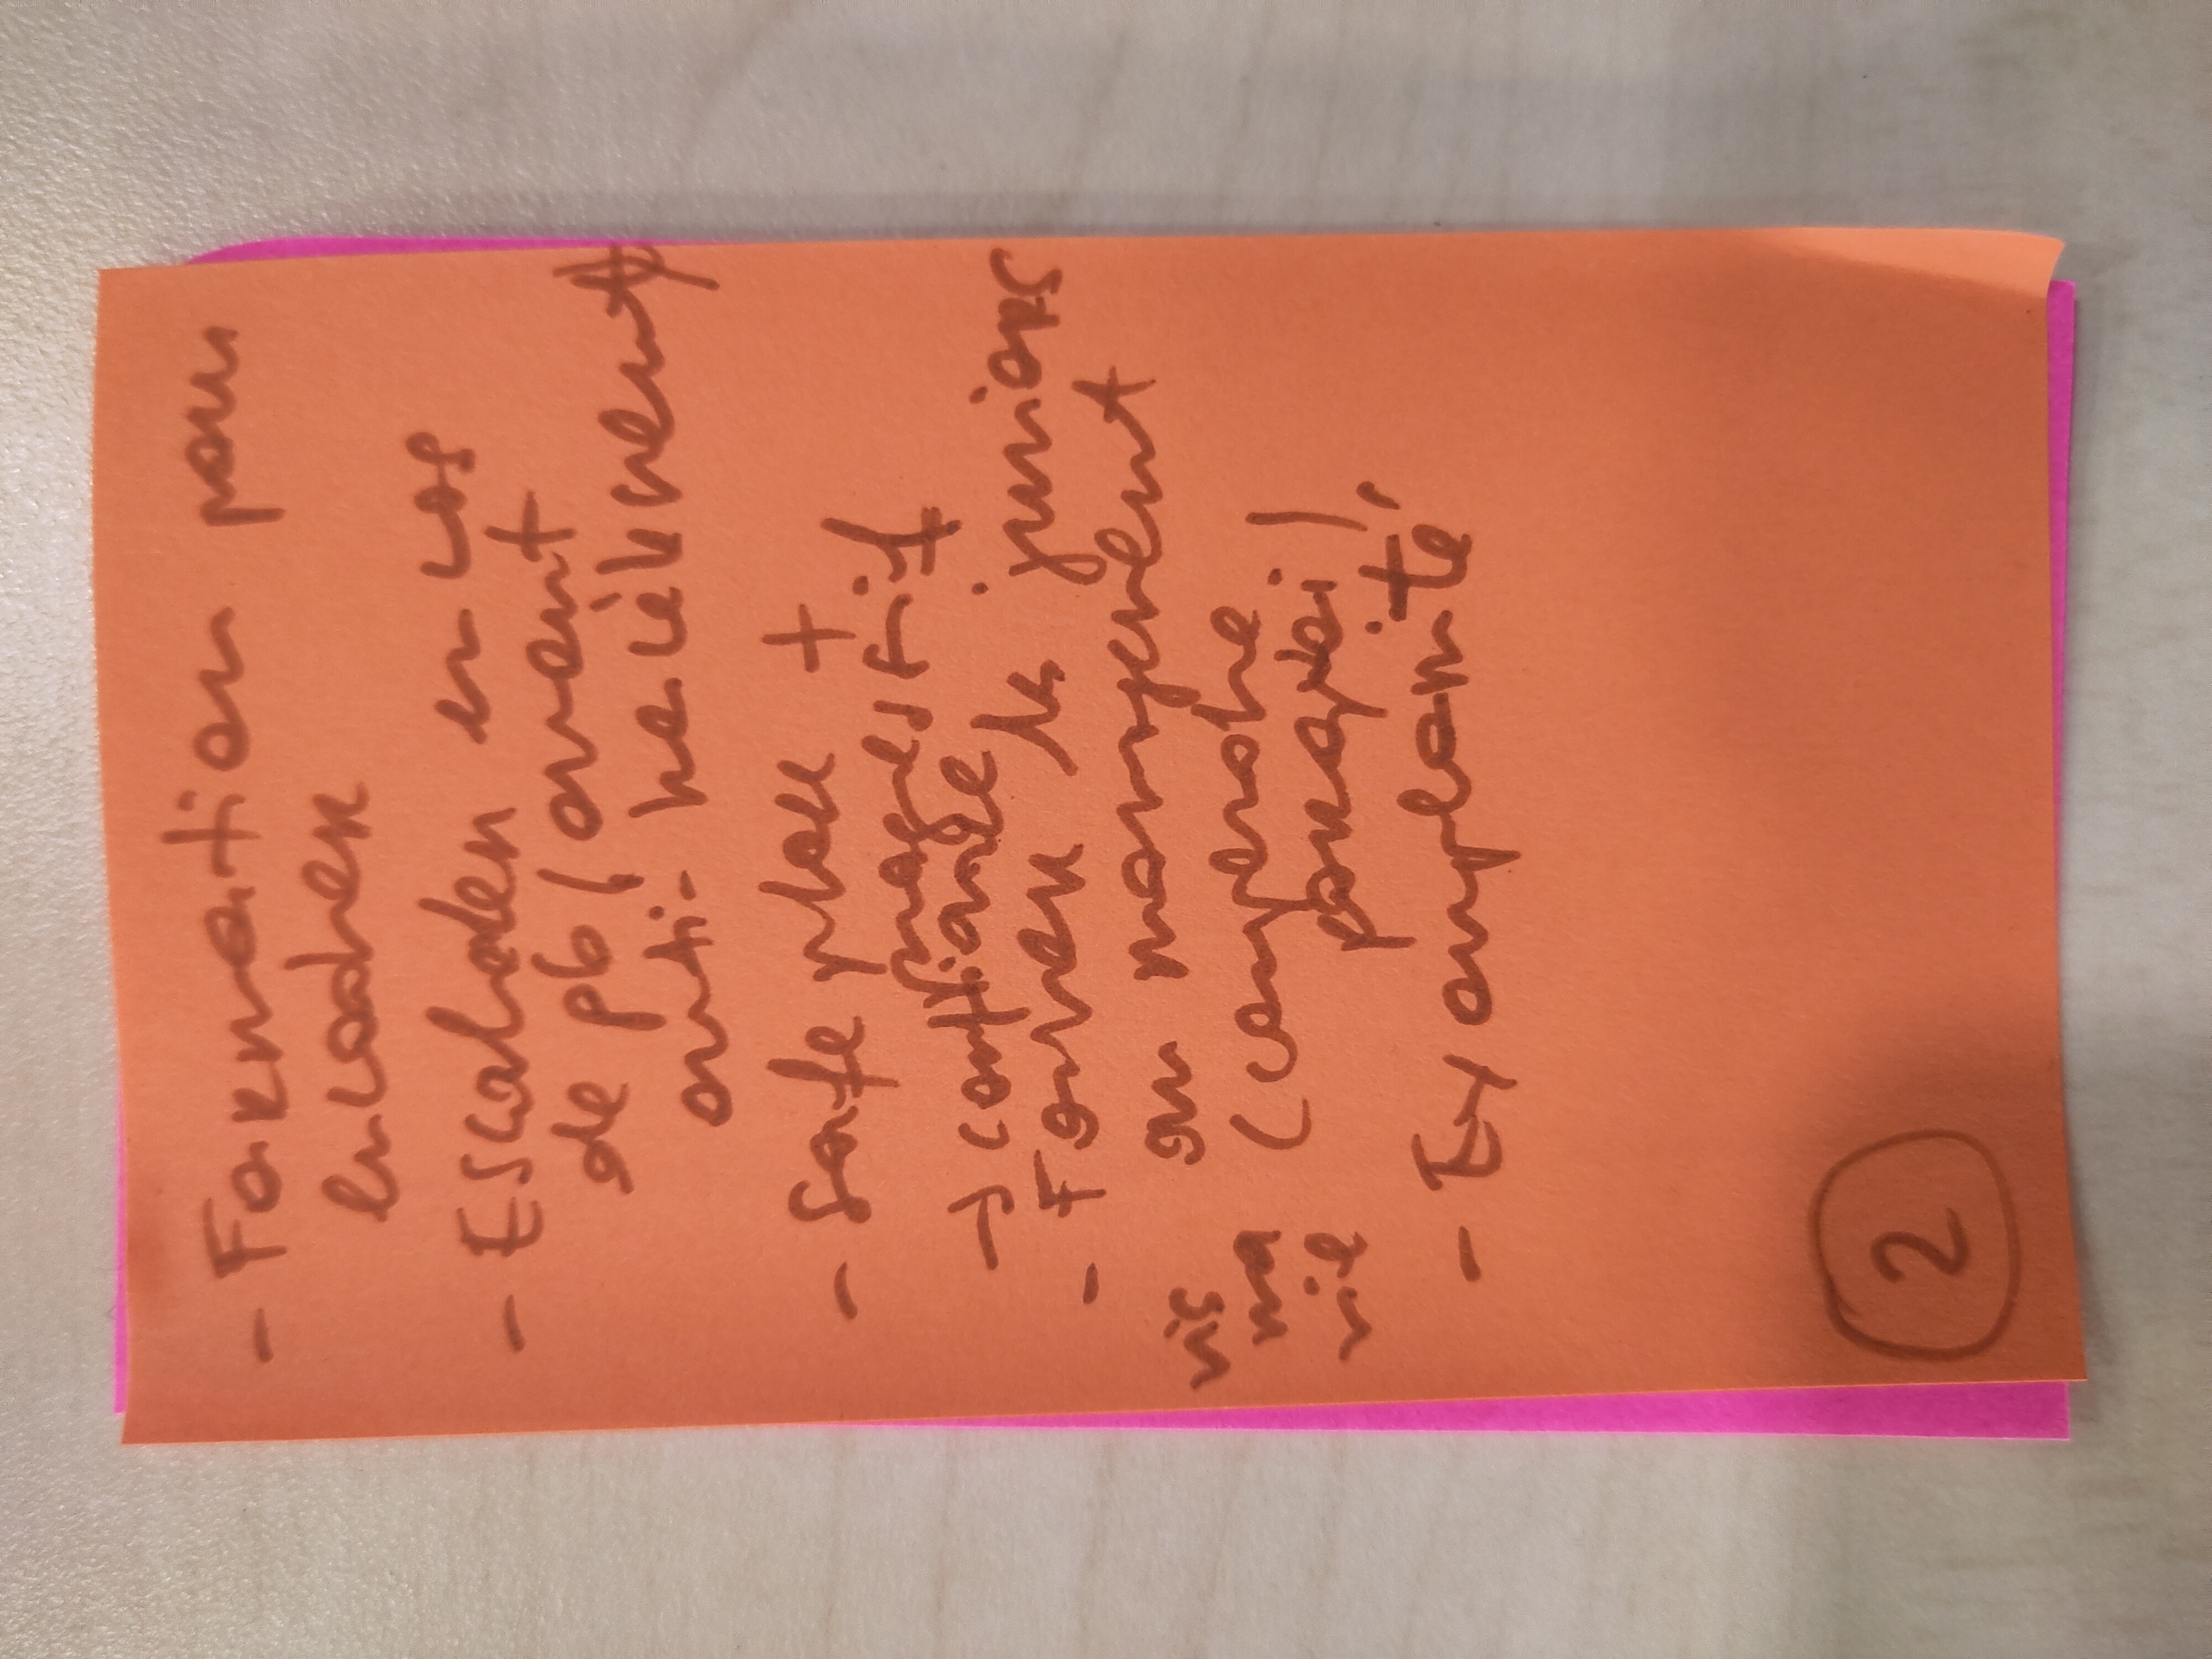 - Formation pour
encadrer
- Escalader en cas
de pb (avant
anti-harcèlement)
- Safe place +
progressif
→ confiance
- Former les juniors
au management
(comprendre
pourquoi)
vis
ma
vie
- Examplarité
2